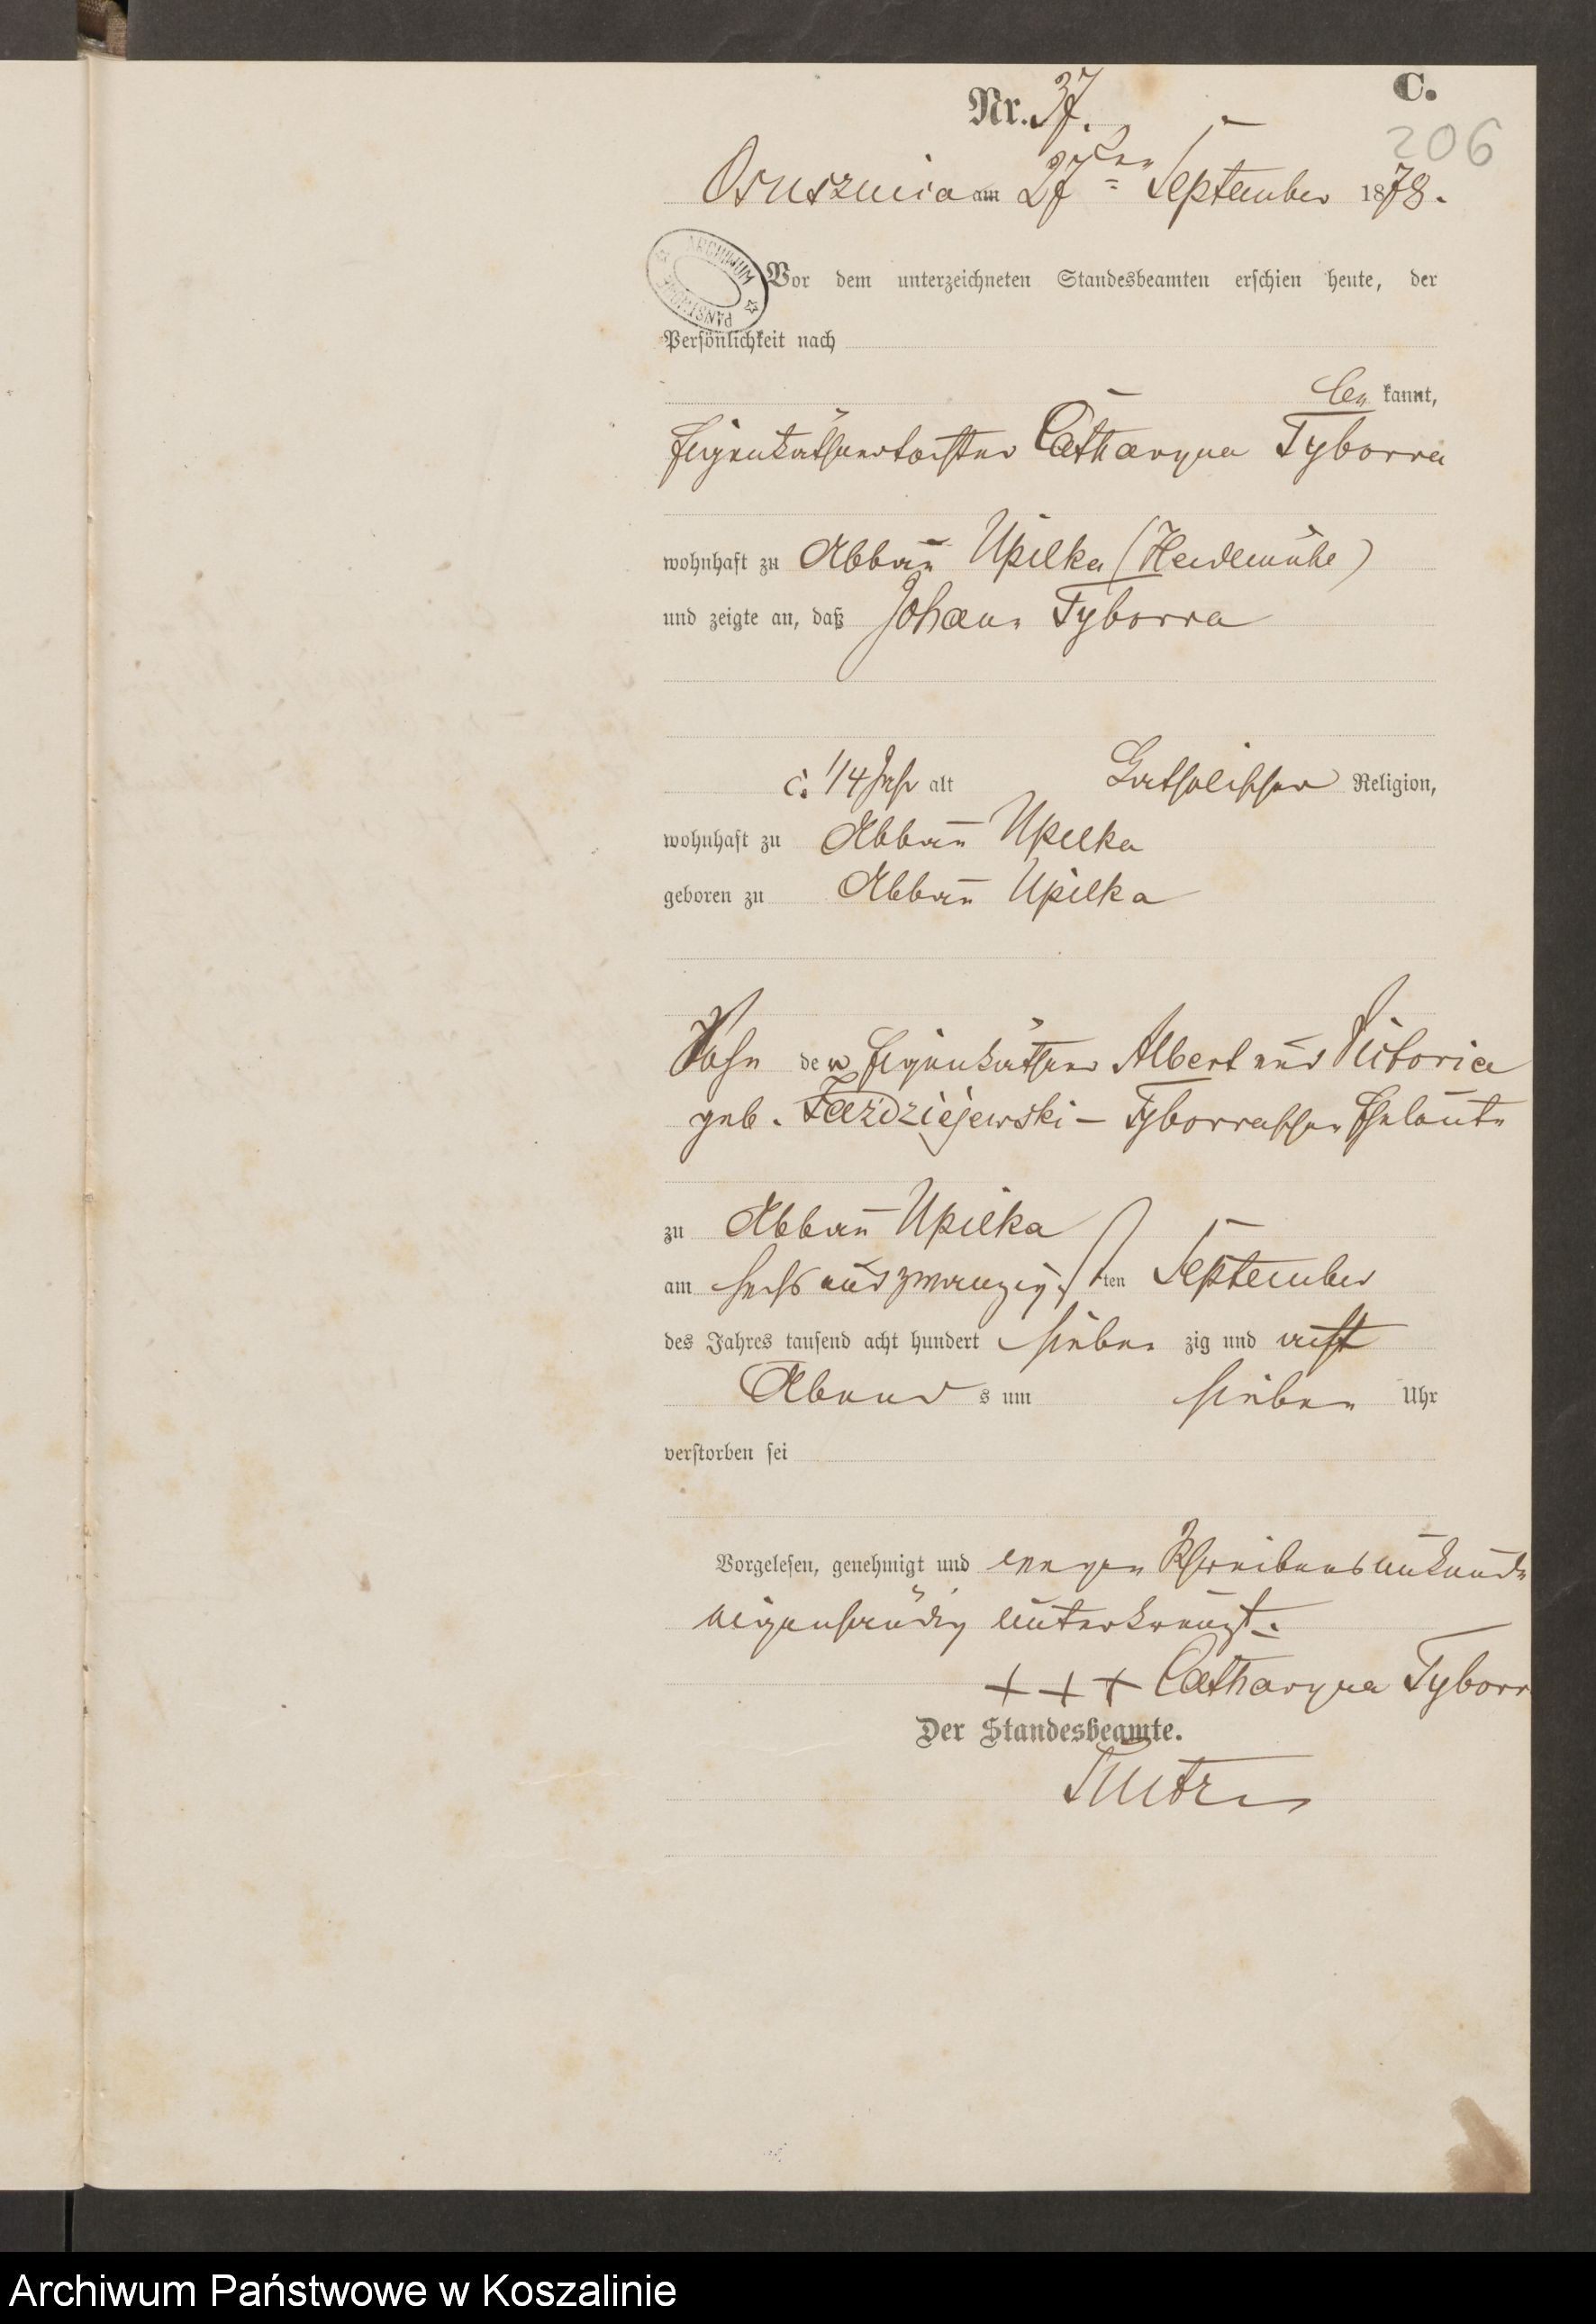 C.
Nr. 37.
206
Osusznica am 27ten September 1878.
ARCHIWUM PAŃSTWOWE
Vor dem unterzeichneten Standesbeamten erschien heute, der
Persönlichkeit nach
be kannt,
Eigenkäthnertochter Catharyna Tyborra
wohnhaft zu Abbau Upilka (Heidemühe)
und zeigte an, daß Johann Tyborra
c. 1/4 Jahr alt Catholischer Religion,
wohnhaft zu Abbau Upilka
geboren zu Abbau Upilka
Sohn der Eigenkäthner Albert und Victoria
geb. – Tyborraschen Eheleute
zu Abbau Upilka
am sechs und zwanzigsten September
des Jahres tausend acht hundert sieben zig und acht
Abend s um sieben Uhr
verstorben sei
Vorgelesen, genehmigt und wegen Schreibensunkunde
eigenhändig unterkreuzt.
+ + + Catharyna Tyborr
Der Standesbeamte.
Archiwum Państwowe w Koszalinie